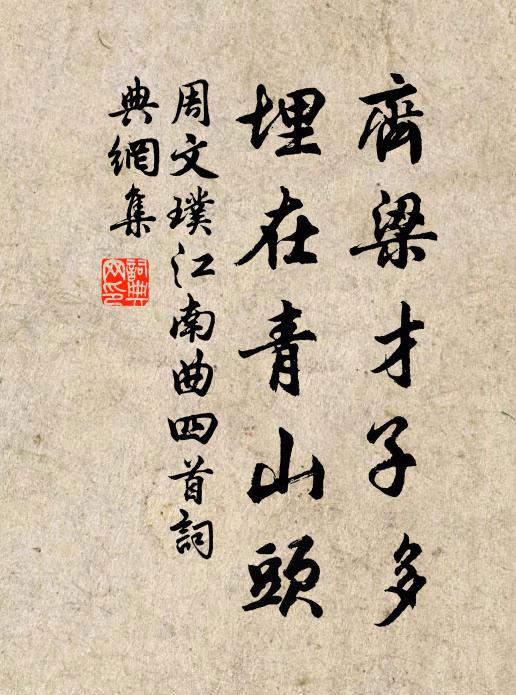 齊梁才子多
埋在青山頭
周文璞江南曲四首詞
典網集
詞典網印